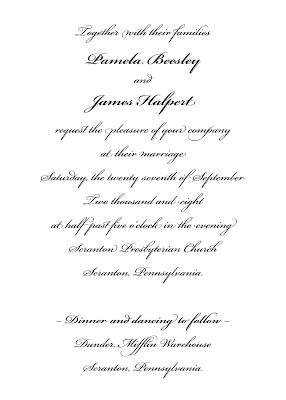 Together with their families
Pamela Beesley
and
James Halpert
request the pleasure of your company
at their marriage
Saturday, the twenty seventh of September
Two thousand and eight
at half past five o'clock in the evening
Scranton Presbyterian Church
Scranton, Pennsylvania.
~ Dinner and dancing to follow ~
Dunder, Mifflin Warehouse
Scranton, Pennsylvania.